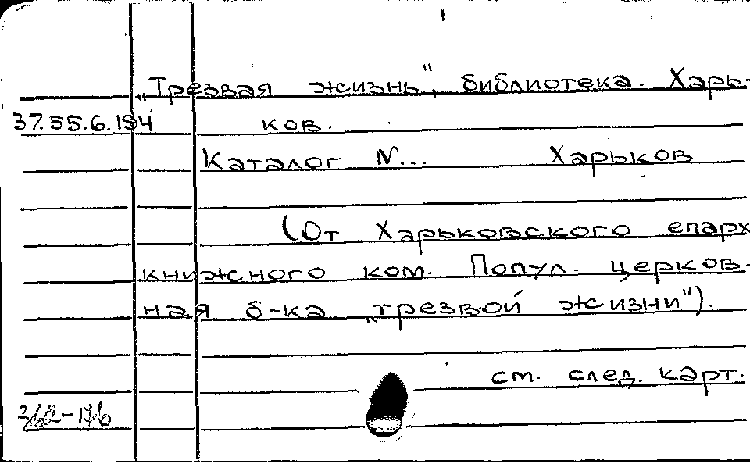 „Трезвая жизнь", библиотека. Харь-
37.55.6.184 ков.
Каталог N... Харьков
(От Харьковского епарх
книжного ком. Попул. церков-
ная б-ка „трезвой жизни").
см. след. карт.